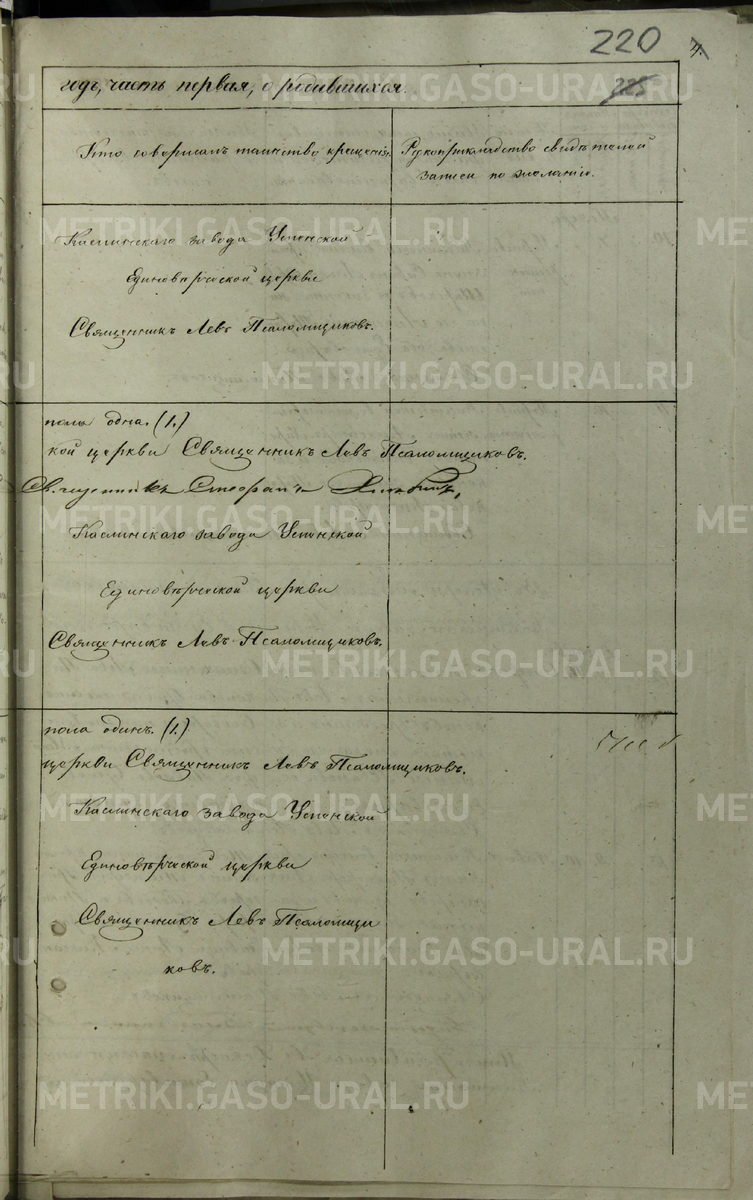 220
4.
225
годъ, часть первая, о родившихся.
Кто совершалъ таинство крещенія.
Рукоприкладство свидѣтелей
записи по желанію.
Каслинскаго завода Успенской
Единовѣрческой церкви
Священникъ Левъ Псаломщиковъ.
пола одна. (1.)
кой церкви Священникъ Левъ Псаломщиковъ.
Священникъ Стефанъ
Каслинскаго завода Успенской
Единовѣрческой церкви
Священникъ Левъ Псаломщиковъ.
пола одинъ. (1.)
церкви Священникъ Левъ Псаломщиковъ.
Каслинскаго завода Успенской
Единовѣрческой церкви
Священникъ Левъ Псаломщи
ковъ.
METRIKI.GASO-URAL.RU